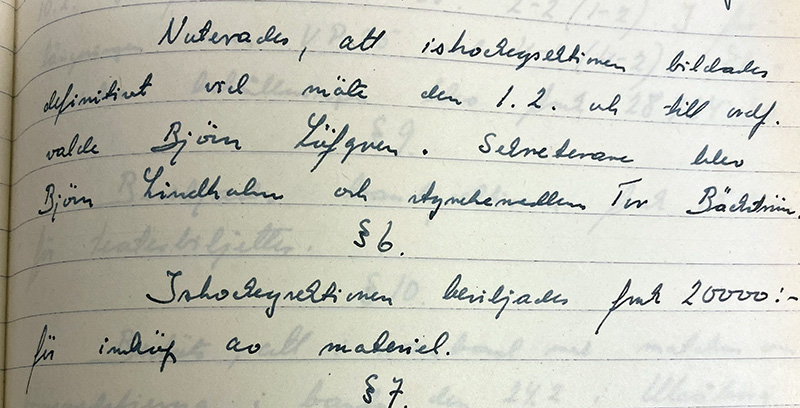 Noterades, att ishockeysektionen bildades
definitivt vid möte den 1.2. och till ordf.
valde Björn Löfgren. Sekreterare blev
Björn Lindholm och styrelsemedlem Tor Bäckström.
§ 6.
Ishockeysektionen beviljades fmk 20000:-
för inköp av materiel.
§ 7.